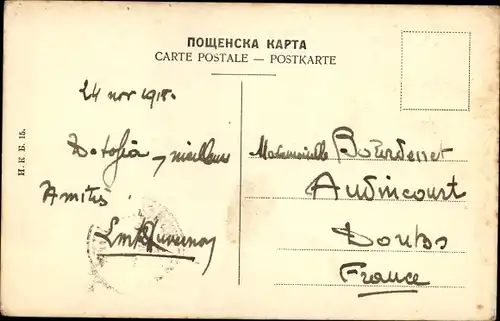 ПОЩЕНСКА КАРТА
CARTE POSTALE — POSTKARTE
И. К. Б. 15.
24 nov 1918.
De Sofia, meilleures
Amitiés
Mademoiselle Bourdenet
Audincourt
Doubs
France